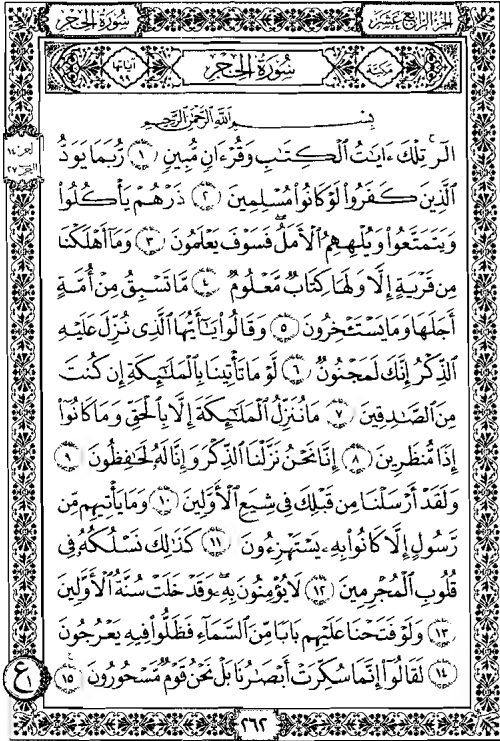 الجزء الرابع عشر
سورة الحجر
مكية
سورة الحجر
آياتها ٩٩
بسم الله الرحمن الرحيم
الٓر تِلْكَ ءَايَٰتُ ٱلْكِتَٰبِ وَقُرْءَانٍ مُّبِينٍ ١ رُّبَمَا يَوَدُّ
ٱلَّذِينَ كَفَرُوا۟ لَوْ كَانُوا۟ مُسْلِمِينَ ٢ ذَرْهُمْ يَأْكُلُوا۟
وَيَتَمَتَّعُوا۟ وَيُلْهِهِمُ ٱلْأَمَلُ ۖ فَسَوْفَ يَعْلَمُونَ ٣ وَمَآ أَهْلَكْنَا
مِن قَرْيَةٍ إِلَّا وَلَهَا كِتَابٌ مَّعْلُومٌ ٤ مَّا تَسْبِقُ مِنْ أُمَّةٍ
أَجَلَهَا وَمَا يَسْتَـْٔخِرُونَ ٥ وَقَالُوا۟ يَٰٓأَيُّهَا ٱلَّذِى نُزِّلَ عَلَيْهِ
ٱلذِّكْرُ إِنَّكَ لَمَجْنُونٌ ٦ لَّوْ مَا تَأْتِينَا بِٱلْمَلَٰٓئِكَةِ إِن كُنتَ
مِنَ ٱلصَّٰدِقِينَ ٧ مَا نُنَزِّلُ ٱلْمَلَٰٓئِكَةَ إِلَّا بِٱلْحَقِّ وَمَا كَانُوٓا۟
إِذًا مُّنظَرِينَ ٨ إِنَّا نَحْنُ نَزَّلْنَا ٱلذِّكْرَ وَإِنَّا لَهُۥ لَحَٰفِظُونَ ٩
وَلَقَدْ أَرْسَلْنَا مِن قَبْلِكَ فِى شِيَعِ ٱلْأَوَّلِينَ ١٠ وَمَا يَأْتِيهِم مِّن
رَّسُولٍ إِلَّا كَانُوا۟ بِهِۦ يَسْتَهْزِءُونَ ١١ كَذَٰلِكَ نَسْلُكُهُۥ فِى
قُلُوبِ ٱلْمُجْرِمِينَ ١٢ لَا يُؤْمِنُونَ بِهِۦ ۖ وَقَدْ خَلَتْ سُنَّةُ ٱلْأَوَّلِينَ
١٣ وَلَوْ فَتَحْنَا عَلَيْهِم بَابًا مِّنَ ٱلسَّمَآءِ فَظَلُّوا۟ فِيهِ يَعْرُجُونَ
١٤ لَقَالُوٓا۟ إِنَّمَا سُكِّرَتْ أَبْصَٰرُنَا بَلْ نَحْنُ قَوْمٌ مَّسْحُورُونَ ١٥
ع
١
٢٦٢